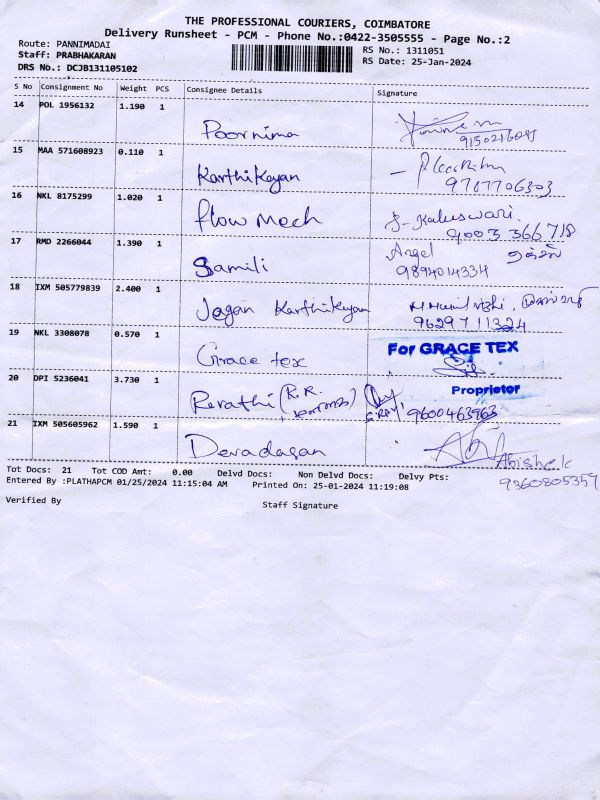 THE PROFESSIONAL COURIERS, COIMBATORE
Delivery Runsheet - PCM - Phone No.:0422-3505555 - Page No.:2
Route: PANNIMADAI
RS No.: 1311051
Staff: PRABHAKARAN
RS Date: 25-Jan-2024
DRS No.: DCJB131105102
S No Consignment No Weight PCS Consignee Details Signature
14 POL 1956132 1.190 1
Poornima
15 MAA 571608923 0.110 1
Karthikeyan
9787706303
16 NKL 8175299 1.020 1
flow Mech S- Kaleswari.
9003 366 718
17 RMD 2266044 1.390 1
Samili Angel
9894014334
18 IXM 505779839 2.400 1
Jagan Karthikeyan
9629711324
19 NKL 3308078 0.570 1
Grace tex For GRACE TEX
Proprietor
20 DPI 5236041 3.730 1
Revathi (K.R. 9600463963
21 IXM 505605962 1.590 1
Devadasan Abishek
9360805357
Tot Docs: 21 Tot COD Amt: 0.00 Delvd Docs: Non Delvd Docs: Delvy Pts:
Entered By :PLATHAPCM 01/25/2024 11:15:04 AM Printed On: 25-01-2024 11:19:08
Verified By Staff Signature